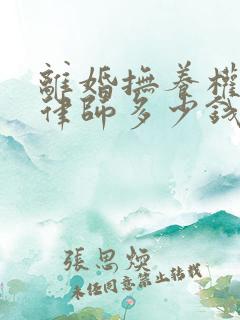 離婚撫養權
律師多少錢
張思煥
未经同意禁止转载